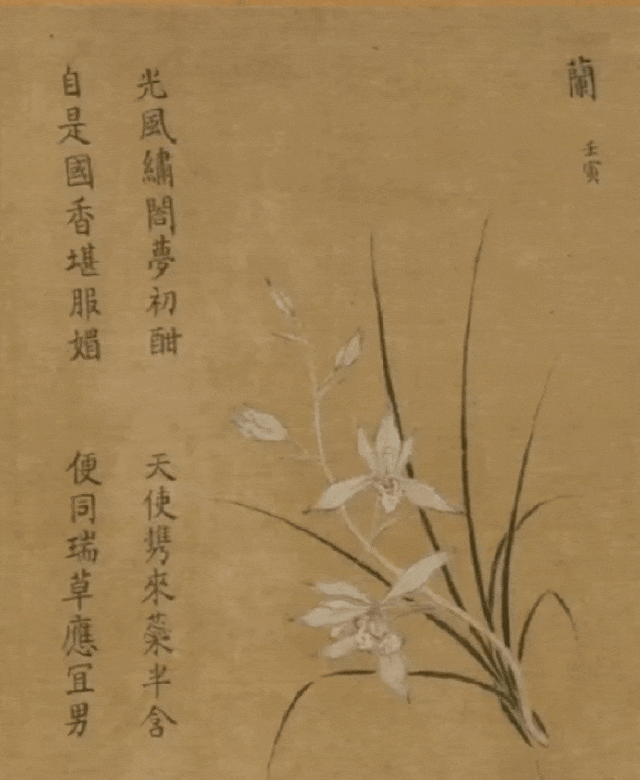 蘭
壬寅
光風繡閤夢初酣
天使携來蘂半含
自是國香堪服媚
便同瑞草應宜男